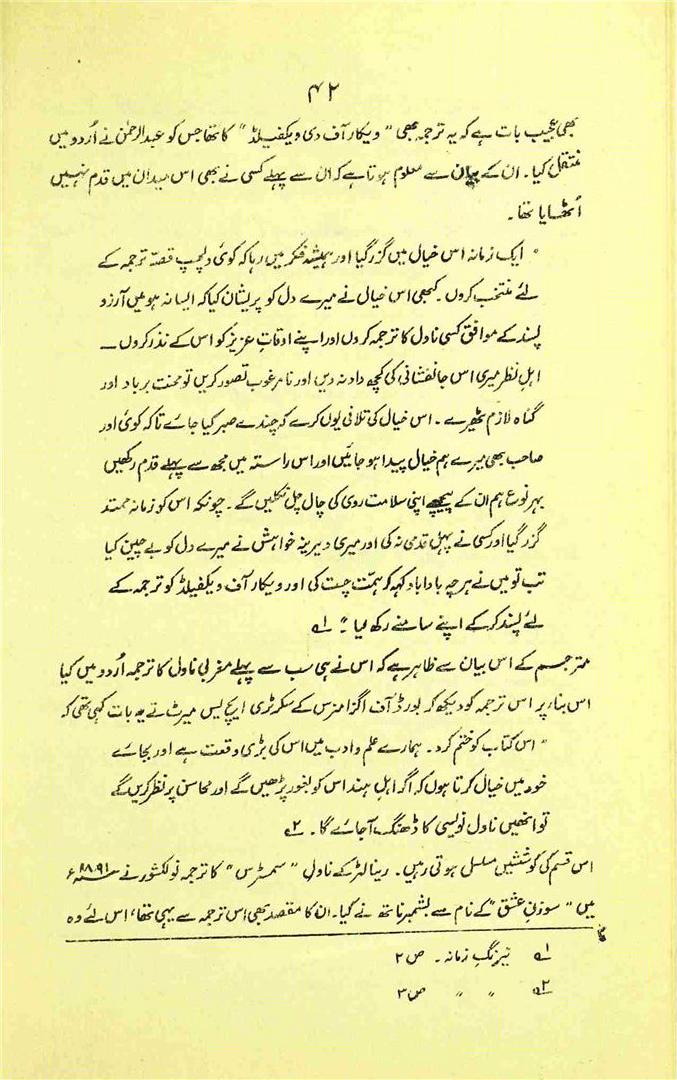 ۴۲
بھی عجیب بات ہے کہ یہ ترجمہ بھی "ویکار آف دی ویکفیلڈ" کا تھا جس کو عبدالرحمٰن نے اُردو میں
منتقل کیا۔ ان کے بیان سے معلوم ہوتا ہے کہ ان سے پہلے کسی نے بھی اس میدان میں قدم نہیں
اُٹھایا تھا۔
"ایک زمانہ اس خیال میں گزر گیا اور ہمیشہ فکر میں رہا کہ کوئی دلچسپ قصّہ ترجمہ کے
لئے منتخب کروں۔ کبھی اس خیال نے میرے دل کو پریشان کیا کہ ایسا نہ ہو میں آرزو
پسند کے موافق کسی ناول کا ترجمہ کروں اور اپنے اوقاتِ عزیز کو اس کے نذر کروں۔
اہلِ نظر میری اس جانفشانی کی کچھ داد نہ دیں اور نامرغوب تصور کریں تو محنت برباد اور
گناہ لازم ٹھیرے۔ اس خیال کی تلافی یوں کرے کہ چندے صبر کیا جائے تاکہ کوئی اور
صاحب بھی میرے ہم خیال پیدا ہو جائیں اور اس راستہ میں مجھ سے پہلے قدم رکھیں
بہر نوع ہم ان کے پیچھے اپنی سلامت روی کی چال چل نکلیں گے۔ چونکہ اس کو زمانہ ممتد
گزر گیا اور کسی نے پہل قدمی نہ کی اور میری دیرینہ خواہش نے میرے دل کو بے چین کیا
تب تو میں نے ہرچہ بادا باد کہہ کر ہمّت چست کی اور ویکار آف ویکفیلڈ کو ترجمہ کے
لئے پسند کر کے اپنے سامنے رکھ لیا۔" ۱؎
مترجم کے اس بیان سے ظاہر ہے کہ اس نے ہی سب سے پہلے مغربی ناول کا ترجمہ اُردو میں کیا
اس بناء پر اس ترجمہ کو دیکھ کر بورڈ آف اگزامنرس کے سکرٹری ایچ ایس میرٹ نے یہ بات کہی تھی کہ
"اس کتاب کو ختم کرد۔ ہمارے علم و ادب میں اس کی بڑی وقعت ہے اور بجائے
خود میں خیال کرتا ہوں کہ اگر اہلِ ہند اس کو بغور پڑھیں گے اور محاسن پر نظر کریں گے
تو انھیں ناول نویسی کا ڈھنگ آجائے گا۔ ۲؎
اس قسم کی کوششیں مسلسل ہوتی رہیں۔ رینالڈز کے ناول "سمسٹرس" کا ترجمہ نولکشور نے ۱۸۹۱ء
میں "سوزنِ عشق" کے نام سے بشمبر ناتھ نے کیا۔ ان کا مقصد بھی اس ترجمہ سے یہی تھا، اس لئے وہ
۱؎ نیرنگِ زمانہ۔ ص ۲
۲؎ " " ص ۳